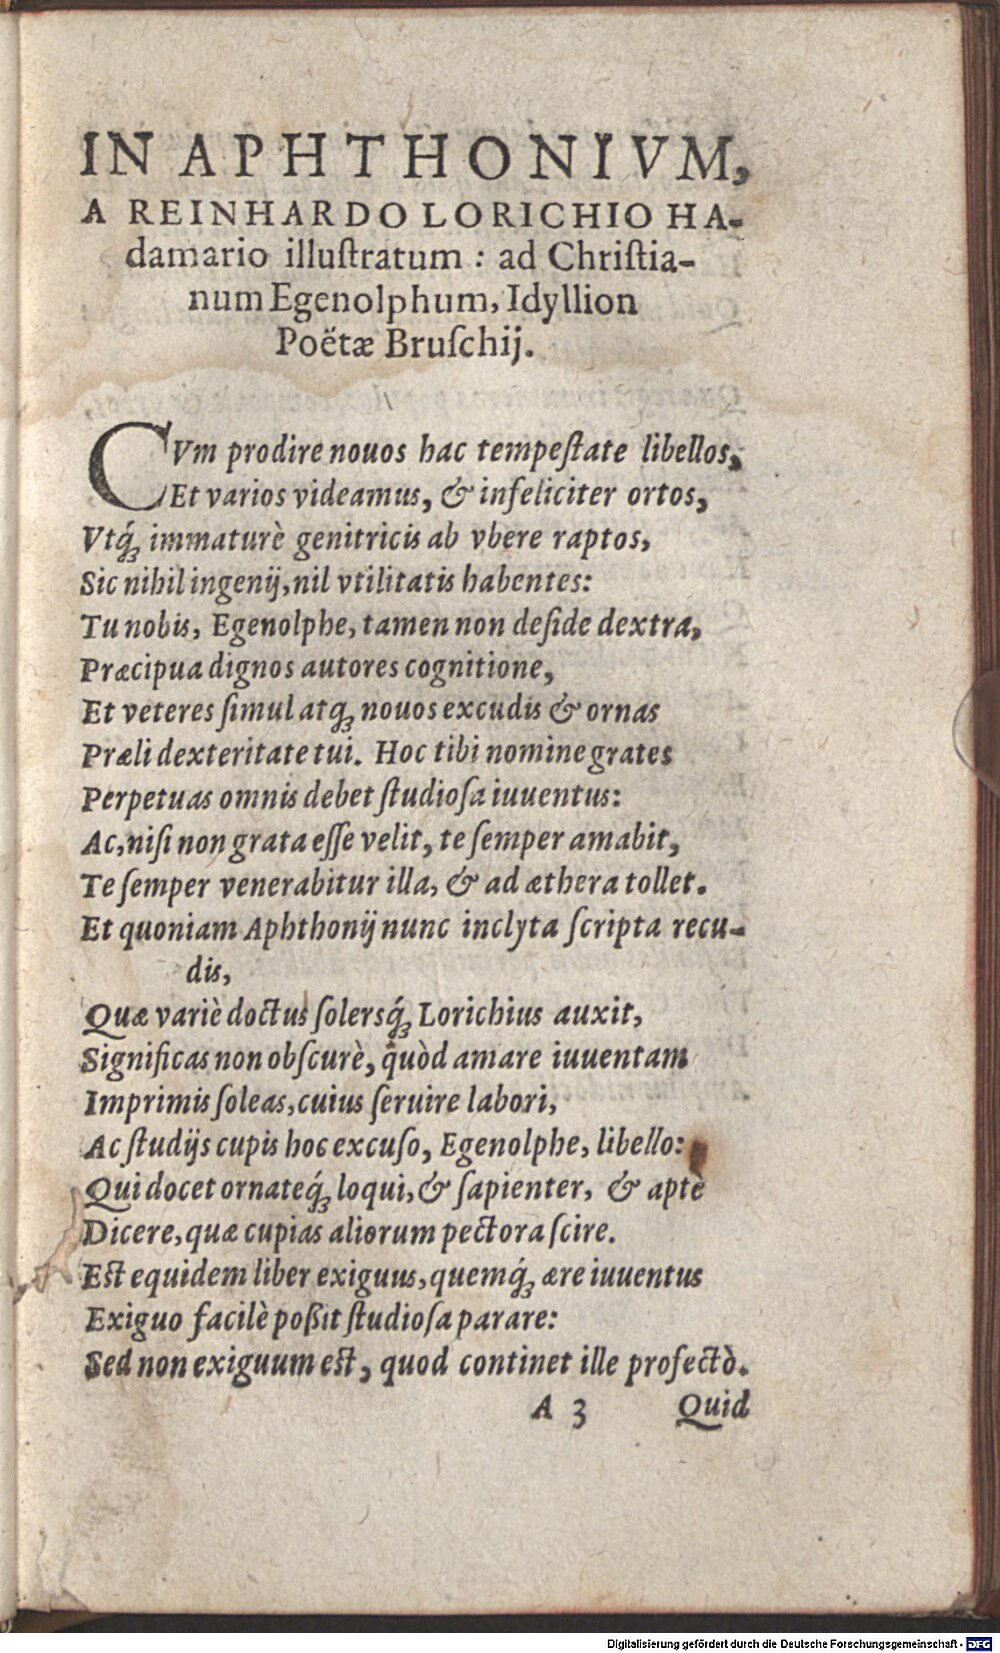 IN APHTHONIVM,
A REINHARDO LORICHIO HA-
damario illuſtratum : ad Chriſtia-
num Egenolphum, Idyllion
Poëtæ Bruſchij.
CVm prodire nouos hac tempeſtate libellos,
Et varios videamus, & infeliciter ortos,
Vtq́ꝫ immaturè genitricis ab vbere raptos,
Sic nihil ingenij, nil vtilitatis habentes:
Tu nobis, Egenolphe, tamen non deſide dextra,
Præcipua dignos autores cognitione,
Et veteres ſimul atqꝫ nouos excudis & ornas
Præli dexteritate tui. Hoc tibi nomine grates
Perpetuas omnis debet ſtudioſa iuuentus:
Ac, niſi non grata eſſe velit, te ſemper amabit,
Te ſemper venerabitur illa, & ad æthera tollet.
Et quoniam Aphthonij nunc inclyta ſcripta recu-
dis,
Quæ variè doctus ſolersq́ꝫ Lorichius auxit,
Significas non obſcurè, quòd amare iuuentam
Imprimis ſoleas, cuius ſeruire labori,
Ac ſtudijs cupis hoc excuſo, Egenolphe, libello:
Qui docet ornateq́ꝫ loqui, & ſapienter, & aptè
Dicere, quæ cupias aliorum pectora ſcire.
Eſt equidem liber exiguus, quemq́ꝫ ære iuuentus
Exiguo facilè poßit ſtudioſa parare:
Sed non exiguum eſt, quod continet ille profectò.
A 3 Quid
Digitalisierung gefördert durch die Deutsche Forschungsgemeinschaft - DFG